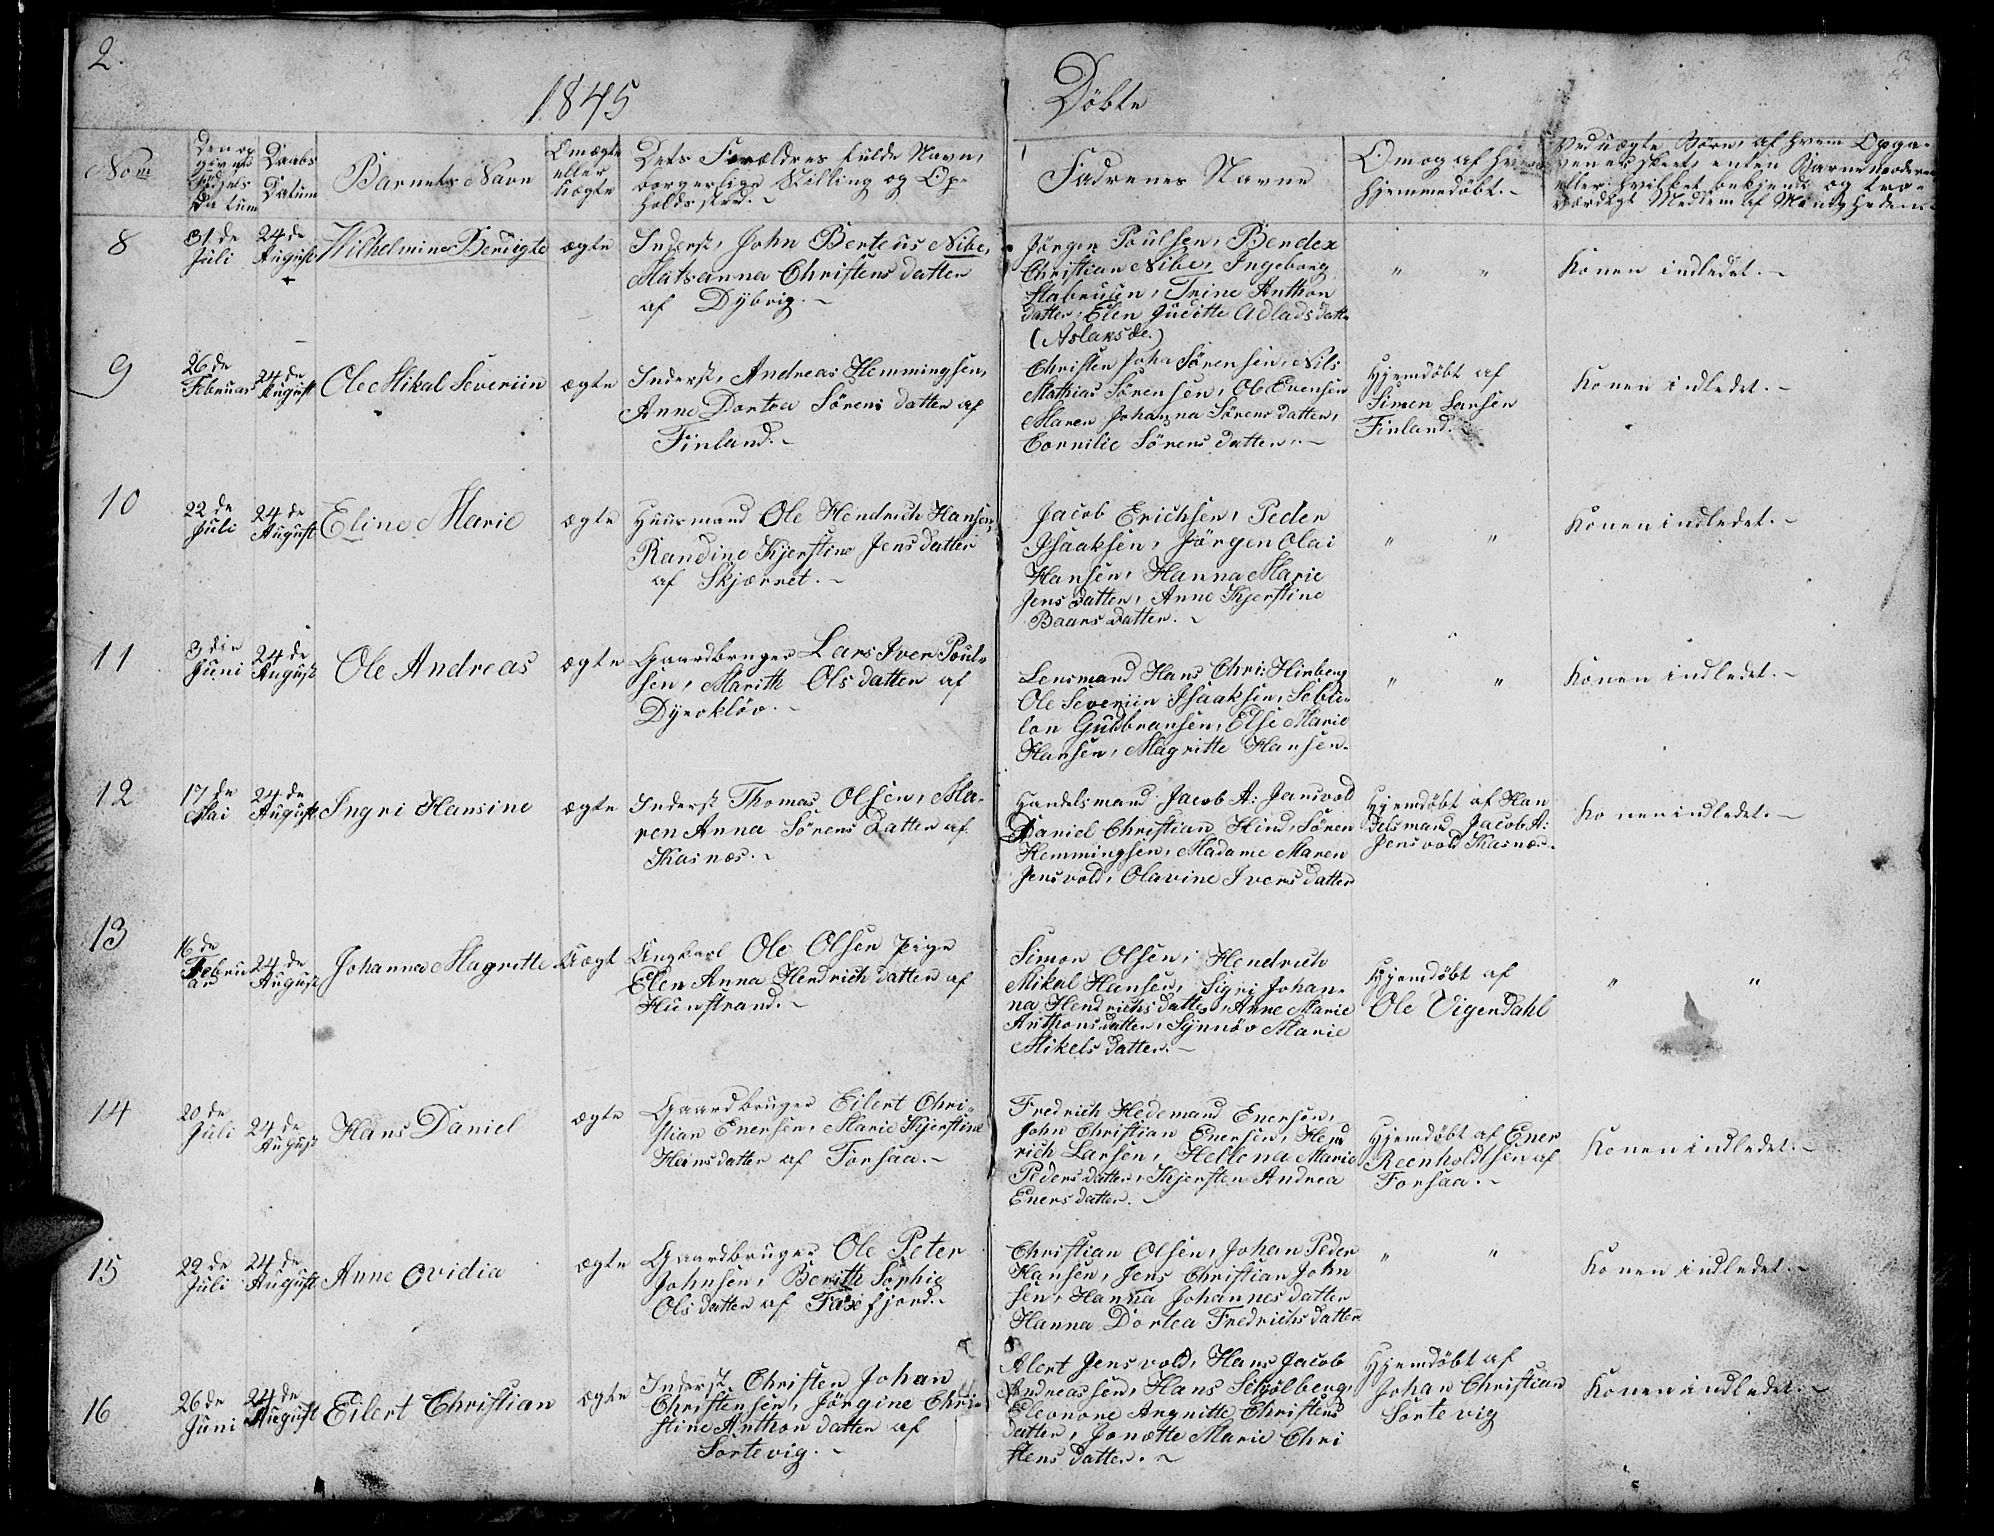 2.
1845
Döbte
Nom
Den op
givets
Födsels
Datum
Daabs
Datum
Barnets Navn
Om ægte
eller
Uægte
Dets Forældres fulde Navn,
borgerlige Stilling og Op-
holdssted. ~
Fadrenes Navne
Om og af hvem
hjemmedöbt. -
Ved uægte Börn, af hvem Opga-
ven er skeet, enten Barnemoderen
eller hvilket bekjendt og tro-
værdigt Medlem af Menigheden. -
8
31. de
Juli
24 de
August
Wilhelmine Bendigte
ægte
Inderst, John Berteus Nibe,
Matsanna Christens datter
af Dybvig. ~
Jörgen Poulsen, Bendex
Christian Nibe, Ingeborg
Trine Anthon
datter, Elen Juditte Adlads datter
(Aslaksde.)
" "
Konen indledet. ~
9
26 de
Februar
24 de
August
Ole Mikal Severiin
ægte
Inderst, Andreas Hemmingsen,
Anne Dortea Sörens datter af
Finland. ~
Christen John Sörensen, Nils
Mathias Sörensen, Ole Evensen
Maren Johanna Sörens datter,
Cornilie Sörens datter. ~
Hjemdöbt af
Simen Larsen
Finland. -
Konen indledet. ~
10
22 de
Juli
24 de
August
Eline Marie
ægte
Huusmand Ole Hendrich Hansen,
Randine Kjerstine Jens datter
af Skjærret. ~
Jacob Erichsen, Peder
Isaaksen, Jörgen Olai
Hansen, Hanna Marie
Jens datter, Anne Kjerstine
Baars datter. ~
" "
Konen indledet. ~
11
3 die
Juni
24 de
August
Ole Andreas
ægte
Gaardbruger Lars Iver Poul-
sen, Marith Ols datter af
Dyrokløv. ~
Lensmand Hans Chri: Hinberg
Ole Severiin Isaaksen,
Gudbransen, Else Marie
Hansen, Magritte Hansen.
" "
Konen indledet. ~
12
17 de
Mai
24 de
August
Ingri Hansine
ægte
Inderst Thomas Olsen, Ma-
ren Anna Sörens datter af
Kasnæs. ~
Handelsmand Jacob A: Jensvold
Daniel Christian Hind, Sören
Hemmingsen, Madame Maren
Jensvold, Olavine Ivers datter
Hjemdöbt af Han
delsmand Jacob A:
Jensvold Kasnæs.
Konen indledet. ~
13
16 de
Febru
ar
24 de
August
Johanna Magritte
Uægt
Ungkarl Ole Olsen pige
Elen Anna Hendrich datter af
Hunstrand. ~
Simon Olsen, Hendrich
Mikal Hansen, Sigri Johan-
na Hendrichs datter, Anne Marie
Anthons datter, Synnöv Marie
Mikels datter. ~
Hjemdöbt af
Ole Vigendahl
" "
14
20 de
Juli
24 de
August
Hans Daniel
ægte
Gaardbruger Eilert Chri-
stian Enersen, Marie Kjerstine
Heins datter af Forsaa. ~
Fredrich Hedemand Enersen,
John Christian Enersen, Hend
rich Larsen, Hellena Marie
Peders datter, Kjersten Andrea
Eners datter. ~
Hjemdöbt af Ener
Reenholdtsen af
Forsaa. ~
Konen indledet. ~
15
22 de
Juli
24 de
August
Anne Ovidia
ægte
Gaardbruger Ole Peter
Johnsen, Berith Sophie
Ols datter af Faxefjord. ~
Christian Olsen, Johan Peder
Hansen, Jens Christian John
sen, Hanna Johannes datter
Hanna Dortea Fredrichs datter
" "
Konen indledet. ~
16
26 de
Juni
24 de
August
Eilert Christian
ægte
Inderst Christen Johan
Christensen, Jörgine Chri-
stine Anthon datter af
Sortevig. ~
Alert Jensvold, Hans Jacob
Andreassen, Hans Schjölberg,
Eleonone Angnitte Christens
datter, Jonette Marie Chri
stens datter. ~
Hjemdöbt af
Johan Christian
Sortevig
Konen indledet. ~